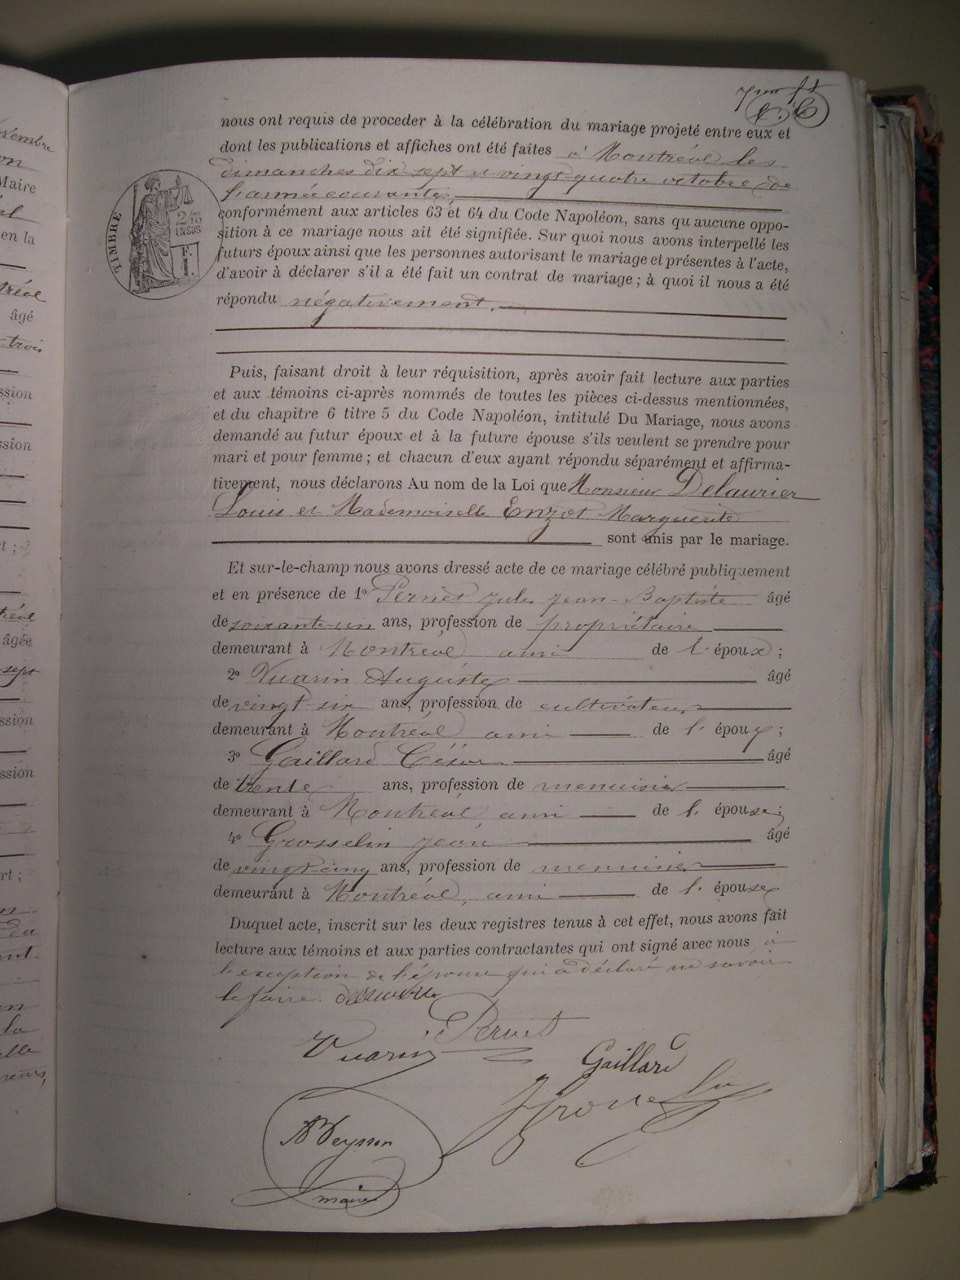 7me ft
nous ont requis de proceder à la célébration du mariage projeté entre eux et
dont les publications et affiches ont été faites à Montréal les
dimanches dix sept et vingt quatre octobre de
l'année courante,
conformément aux articles 63 et 64 du Code Napoléon, sans qu'aucune oppo-
sition à ce mariage nous ait été signifiée. Sur quoi nous avons interpellé les
futurs époux ainsi que les personnes autorisant le mariage et présentes à l'acte,
d'avoir à déclarer s'il a été fait un contrat de mariage ; à quoi il nous a été
répondu négativement.
TIMBRE
2/10
EN SUS
F.
Puis, faisant droit à leur réquisition, après avoir fait lecture aux parties
et aux témoins ci-après nommés de toutes les pièces ci-dessus mentionnées,
et du chapitre 6 titre 5 du Code Napoléon, intitulé Du Mariage, nous avons
demandé au futur époux et à la future épouse s'ils veulent se prendre pour
mari et pour femme ; et chacun d'eux ayant répondu séparément et affirma-
tivement, nous déclarons Au nom de la Loi que Monsieur Delaurier
Louis et Mademoiselle Enzot Marguerite
sont unis par le mariage.
Et sur-le-champ nous avons dressé acte de ce mariage célébré publiquement
et en présence de 1o Jules Jean-Baptiste âgé
de soixante-un ans, profession de propriétaire
demeurant à Montréal ami de l'époux ;
2o Vuarin Auguste âgé
de vingt-six ans, profession de cultivateur
demeurant à Montréal ami de l'époux ;
3o Gaillard César âgé
de trente ans, profession de menuisier
demeurant à Montréal ami de l'épouse ;
4o Grosselin Jean âgé
de vingt-cinq ans, profession de menuisier
demeurant à Montréal, ami de l'épouse
Duquel acte, inscrit sur les deux registres tenus à cet effet, nous avons fait
lecture aux témoins et aux parties contractantes qui ont signé avec nous à
l'exception de l'épouse qui a déclaré ne savoir
le faire.
Vuarin
Gaillard
maire
Maire
en la
âgé
trois
âgée
sept